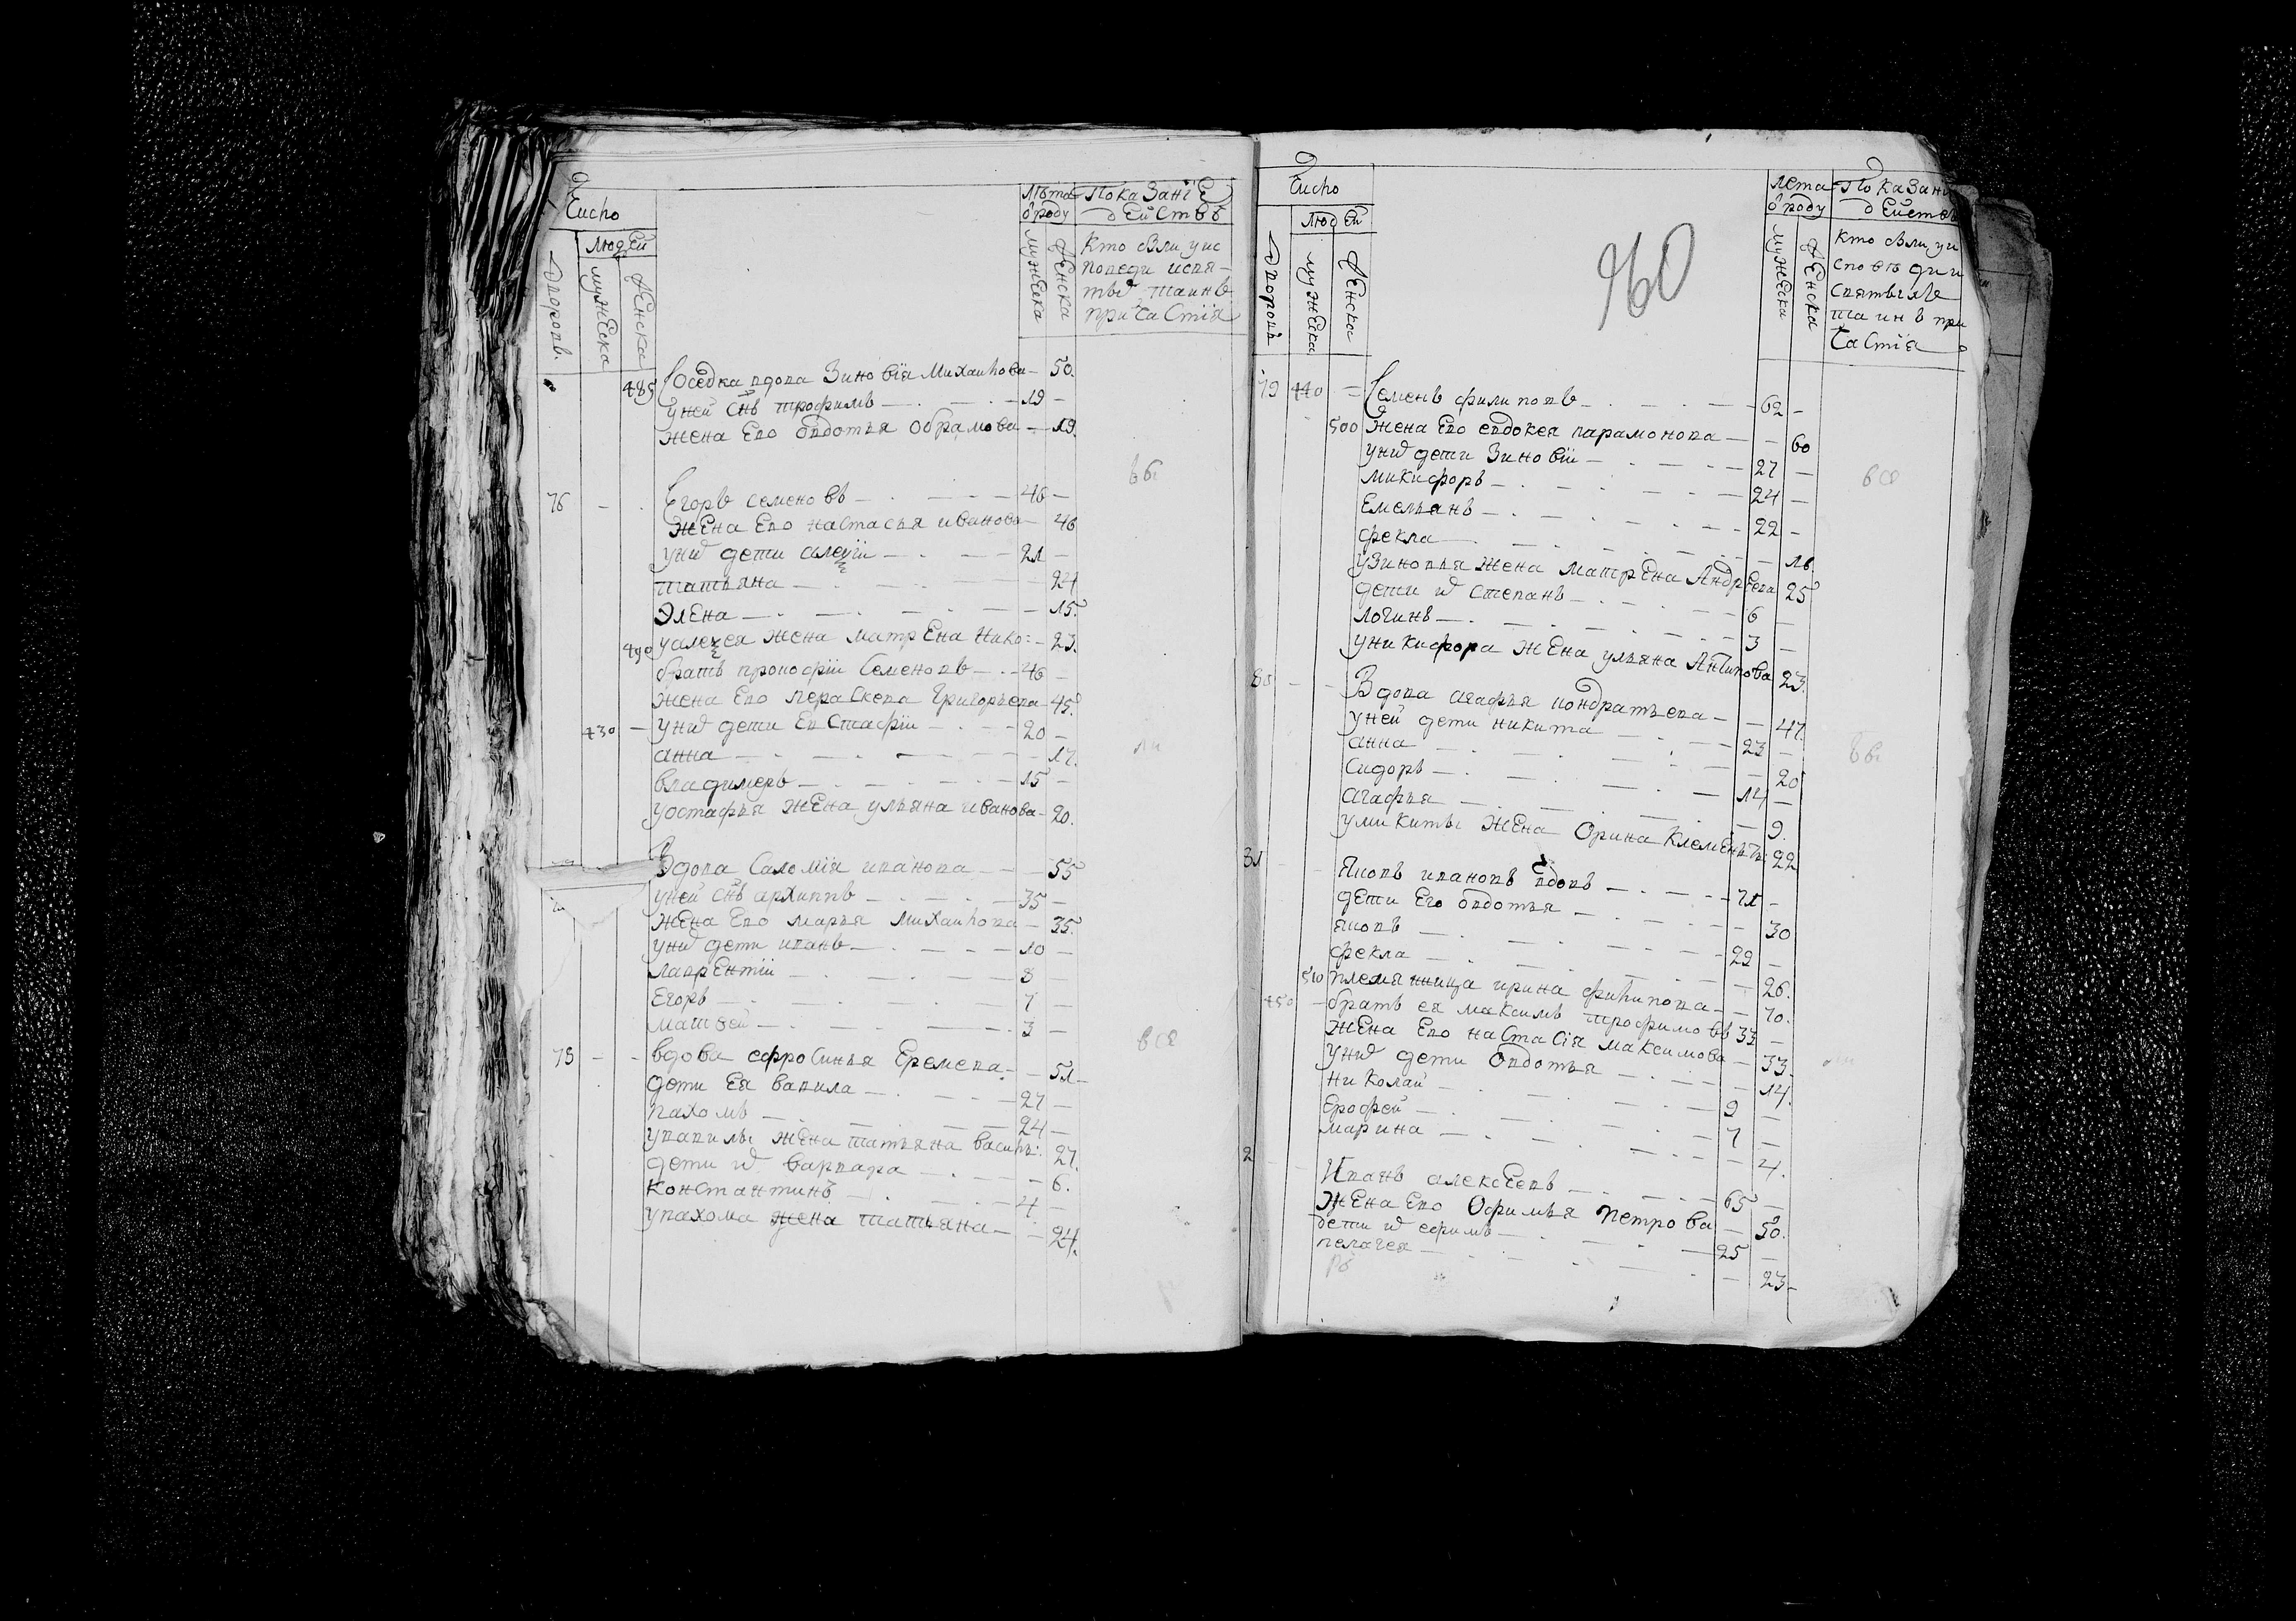 Число
Людей
Дворовъ
мужеска
женска
Лѣта
ѿ роду
мужеска
женска
Показанїе
дѣйствъ
Кто былъ у ис
поведи и свя-
тыхъ таинъ
причастїя
485 Соседка вдова Зиновїя Михаилова — 50.
у ней снъ трофимъ — 19 —
жена Его овдотья обрамова — 19.
все
76 — Егоръ семеновъ — 46 —
жена Его настасья иванова — 46
у них дети алеѯїи — 21 —
татьяна — 24
Элена — 15.
490 у алеѯея жена матрена Нико: — 23.
братъ прокофїи Семеновъ — 46 —
жена Его пераскева Григорьева — 45.
430 — у них дети Евстафїи — 20 —
анна — 17.
владимеръ — 15 —
у остафья жена ульяна иванова — 20.
Вдова Саломїя иванова — 55
у ней снъ архиппъ — 35 —
жена Его марья михаилова — 35.
у них дети иванъ — 10 —
лаврентїи — 8
Егоръ — 7 —
матвей — 3 —
все
78 — вдова ефросинья Еремева — 51
дети Ея вавила — 27 —
пахомъ — 24 —
у вавилы жена татьяна василь: 27.
дети их варвара — 6.
константинъ — 4 —
у пахома жена татьяна — 24.
Число
Людей
Дворовъ
мужеска
женска
960
Лета
ѿ роду
мужеска
женска
Показанї
дѣйствъ
Кто былъ у и
споведи и
святыхъ
таинъ при
частїя
79 440 — Семенъ филиповъ — 62 —
500 Жена Его евдокея парамонова — 60
у них дети Зиновїи — 27 —
микифоръ — 24 —
Емельянъ — 22 —
фекла — 18
у Зиновья жена матрена Андреева 25
дети их степанъ — 6 —
логинъ — 3 —
у никифора жена ульяна Антипова 23.
все
80 — Вдова агафья кондратьева — 47.
у ней дети никита — 23 —
анна — 20
Сидоръ — 14 —
агафья — 9.
у микиты жена Орина Клементь: 22
все
81 Яковъ ивановъ вдовъ — 71 —
дети Его овдотья — 30
яковъ — 22 —
фекла — 26.
510 племянница ирина филипова — 70.
450 — братъ ея максимъ трофимовъ 33 —
жена Его настасїя максимова — 33.
у них дети Овдотья — 14.
николай — 9
Ерофей — 7 —
марина — 4.
2 Иванъ алексеевъ — 65 —
жена Его Офимья петрова — 50.
дети их ефимъ — 25 —
пелагея — 23 —